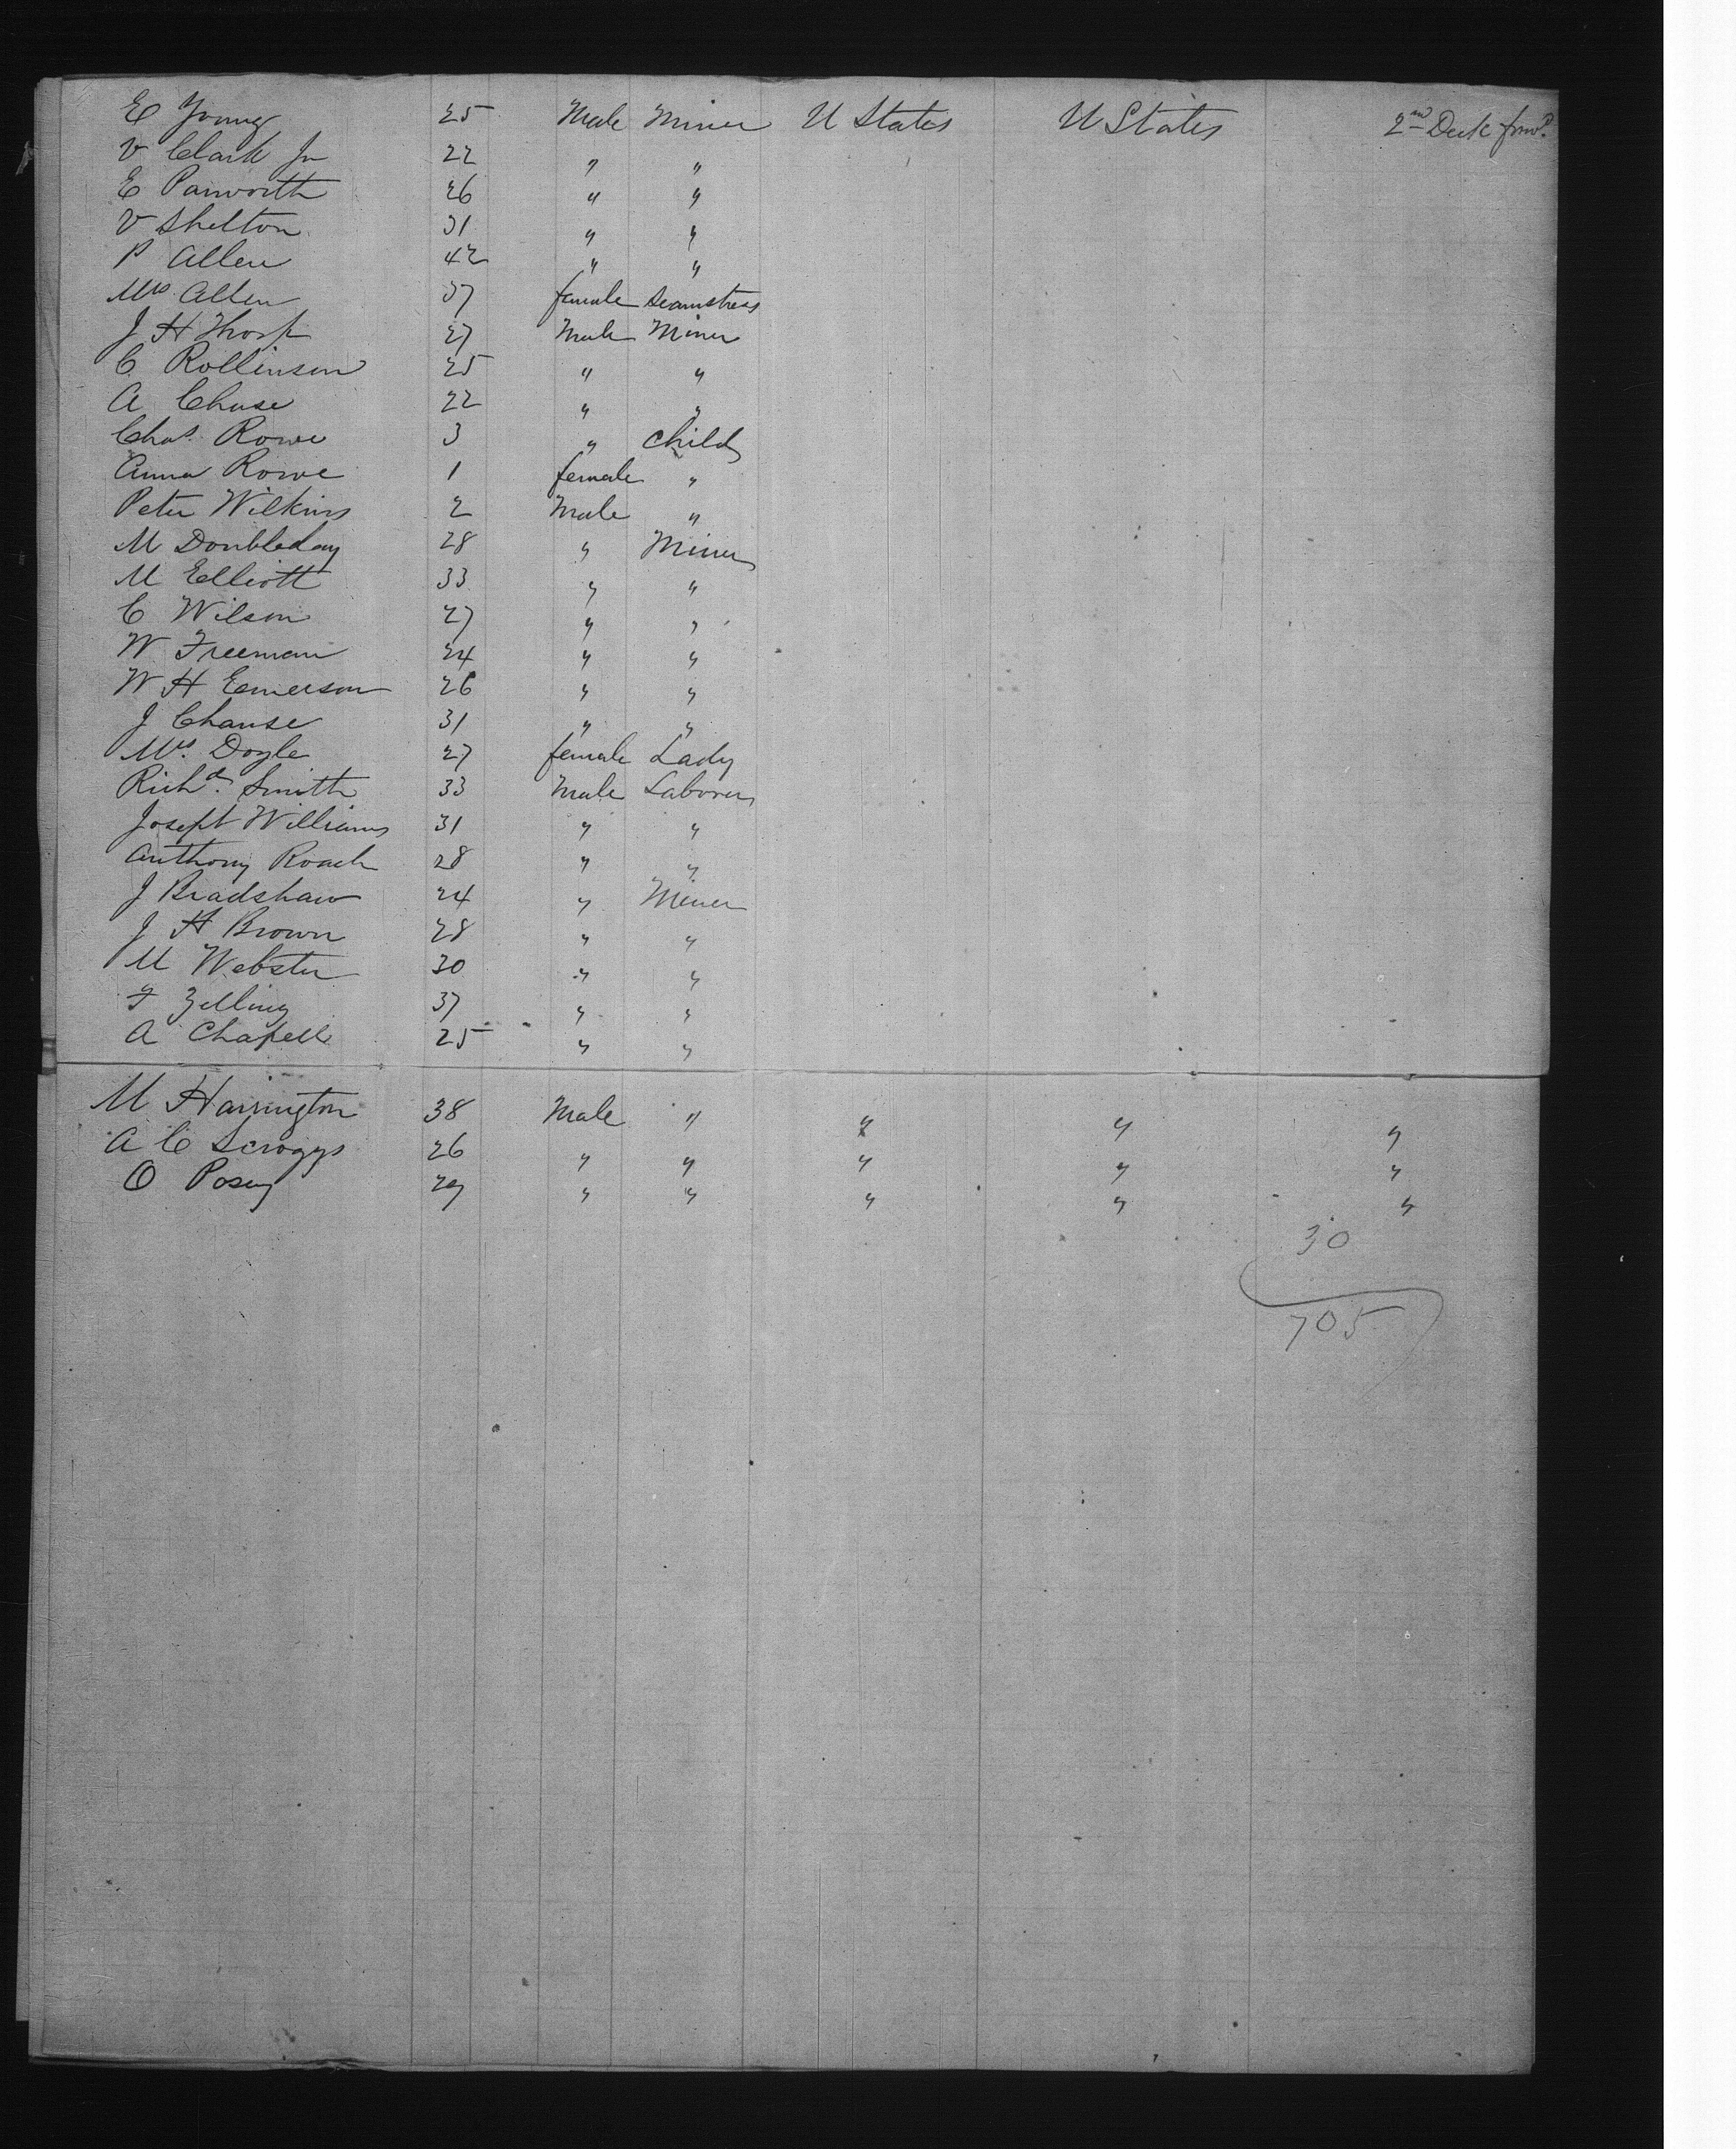 E Young 25 Male Miner U States U States 2nd Deck forwd.
V Clark Jr 22 " "
E Parworth 26 " "
V Shelton 31 " "
P Allen 42 " "
Mrs Allen 37 female Seamstress
J H Thorp 27 Male Miner
C Rollinson 25 " "
A Chase 22 " "
Chas. Rowe 3 " Child
Anna Rowe 1 female "
Peter Wilkins 2 Male "
M Doubleday 28 " Miner
M Elliott 33 " "
C Wilson 27 " "
W Freeman 24 " "
W H Emerson 26 " "
J Chanse 31 " "
Mrs. Doyle 27 female Lady
Richd. Smith 33 Male Laborer
Joseph Williams 31 " "
Anthony Roach 28 " "
J Bradshaw 24 " Miner
J H Brown 28 " "
M Webster 30 " "
F Zelling 37 " "
A Chapell 25 " "
M Harrington 38 Male " " " "
A C Scroggs 26 " " " " "
O Posey 29 " " " " "
30
705